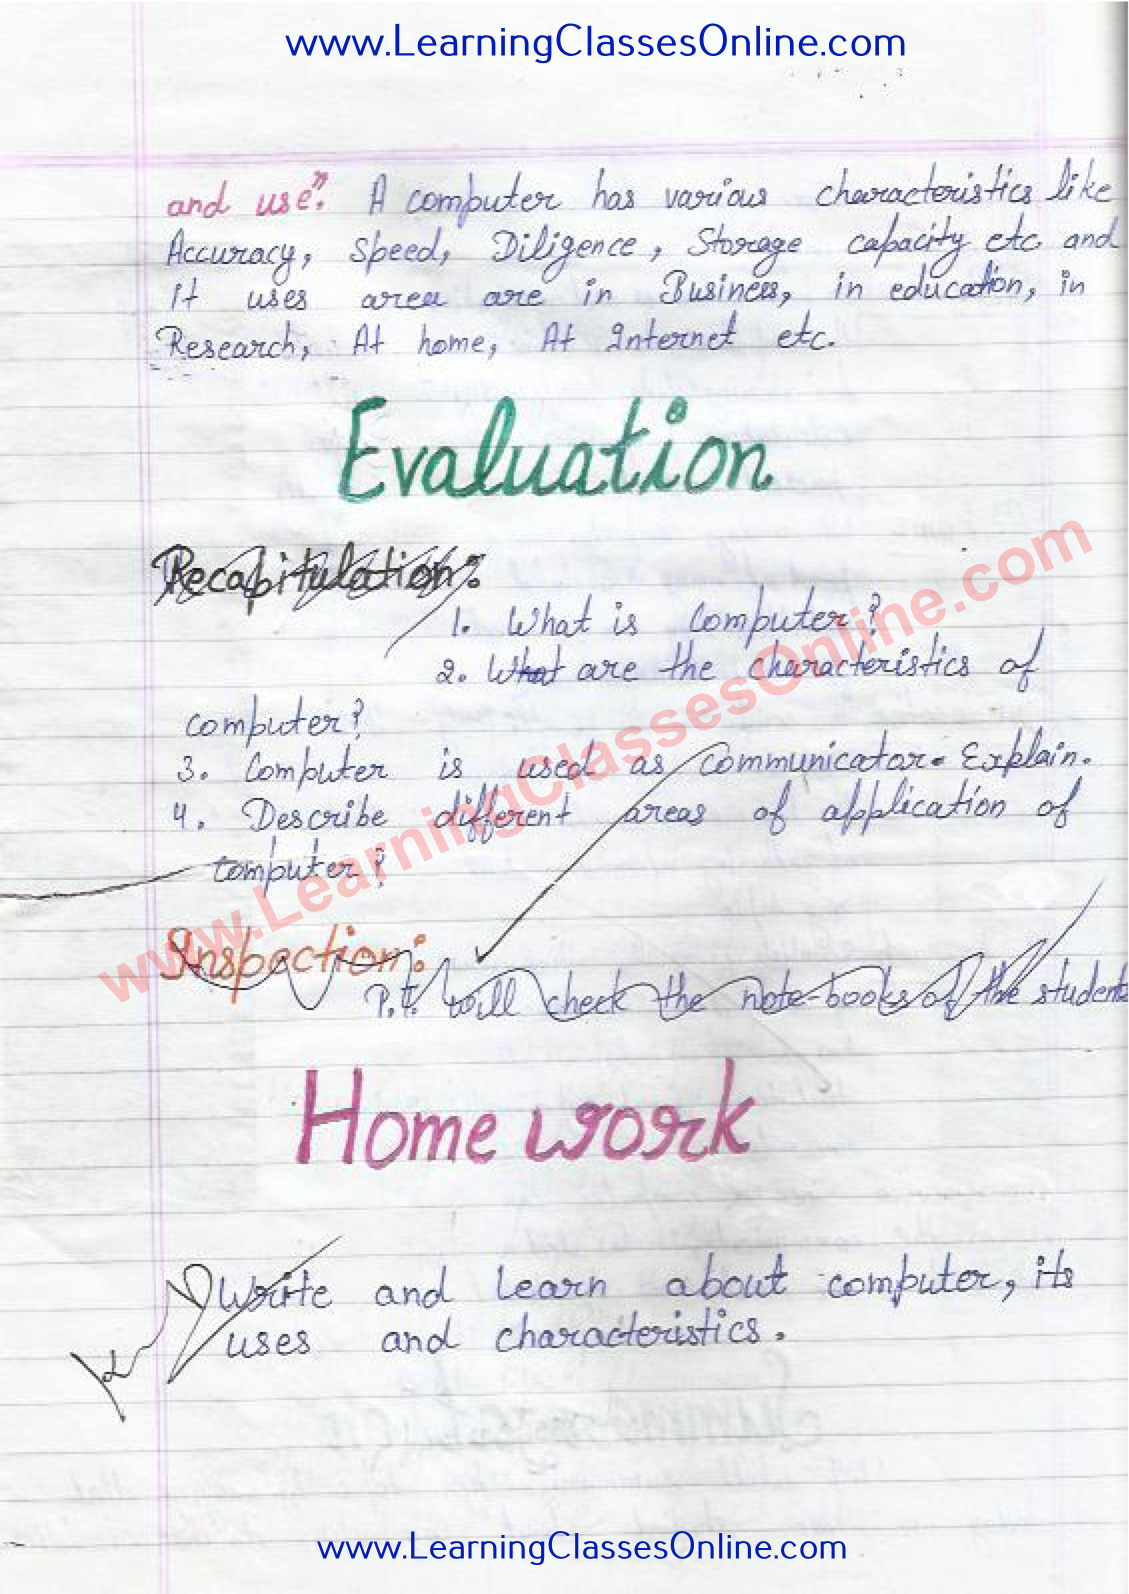 www.LearningClassesOnline.com
and use". A computer has various characteristics like
Accuracy, Speed, Diligence, Storage capacity etc and
it uses area are in Business, in education, in
Research, At home, At Internet etc.
Evaluation
Recapitulation:
1. What is computer?
2. What are the characteristics of
computer?
3. Computer is used as communicator. Explain.
4. Describe different areas of application of
computer?
www.LearningClassesOnline.com
Inspection:
P.T. will check the note-books of the students
Home work
Write and learn about computer, its
uses and characteristics.
www.LearningClassesOnline.com